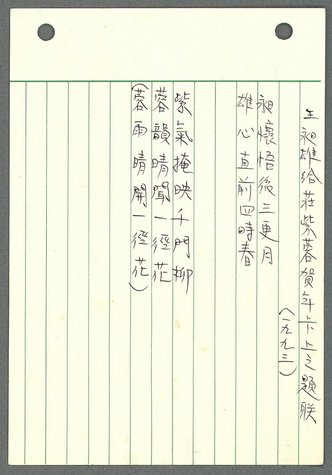 王昶雄給莊紫蓉賀年卡上之題联
(一九九三)
昶懷悟後三更月
雄心直前四時春
紫氣掩映千門柳
蓉韻晴聞一徑花
(蓉雨晴開一徑花)